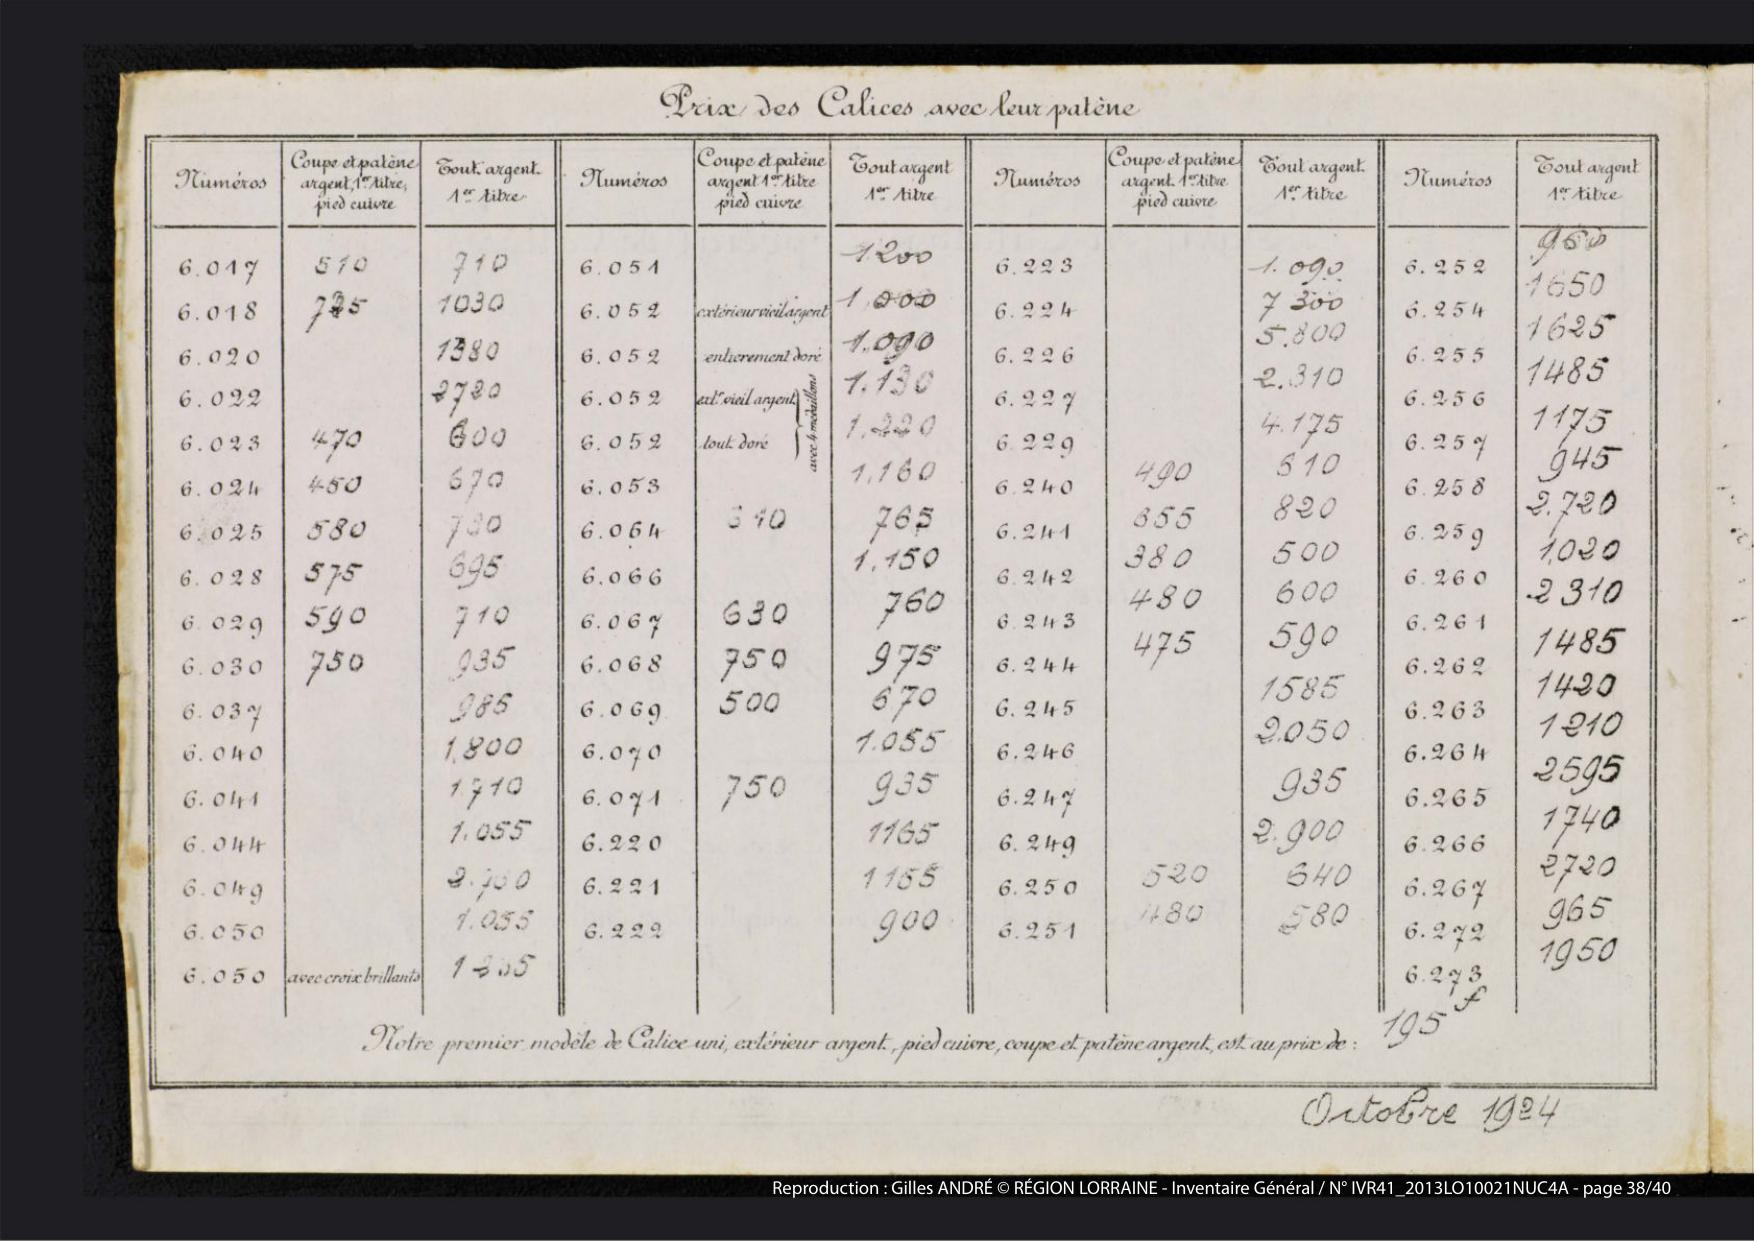 Prix des Calices avec leur patène
Numéros | Coupe et patène argent, 1er titre, pied cuivre | Tout argent. 1er titre | Numéros | Coupe et patène argent 1er titre pied cuivre | Tout argent 1er titre | Numéros | Coupe et patène argent. 1er titre pied cuivre | Tout argent. 1er titre | Numéros | Tout argent 1er titre
6.017 510 710 6.051 1200 6.223 1.090 6.252
6.018 1030 6.052 extérieur vieil argent 1.000 6.224 7300 6.254 1650
6.020 1380 6.052 entièrement doré 1.090 6.226 5.800 6.255 1625
6.022 2720 6.052 extr vieil argent avec 4 médaillons 1.130 6.227 2.310 6.256 1485
6.023 470 600 6.052 tout doré 1.220 6.229 4.175 6.257 1175
6.024 450 670 6.053 1.160 6.240 490 610 6.258 945
6.025 580 6.064 765 6.241 655 820 6.259 2.720
6.028 575 695 6.066 1.150 6.242 380 500 6.260 1.020
6.029 590 710 6.067 630 760 6.243 480 600 6.261 2310
6.030 750 935 6.068 750 975 6.244 475 590 6.262 1485
6.037 985 6.069 500 670 6.245 1585 6.263 1420
6.040 1.800 6.070 1.055 6.246 2.050 6.264 1210
6.041 1.710 6.071 750 935 6.247 935 6.265 2595
6.044 1.055 6.220 1165 6.249 2.900 6.266 1740
6.049 6.221 1165 6.250 520 640 6.267 2720
6.050 1.055 6.222 900 6.251 480 580 6.272 965
6.050 avec croix brillants 6.273 1950
Notre premier modèle de Calice uni, extérieur argent, pied cuivre, coupe et patène argent, est au prix de : 195 f
Octobre 1924
Reproduction : Gilles ANDRÉ © RÉGION LORRAINE - Inventaire Général / N° IVR41_2013LO10021NUC4A - page 38/40